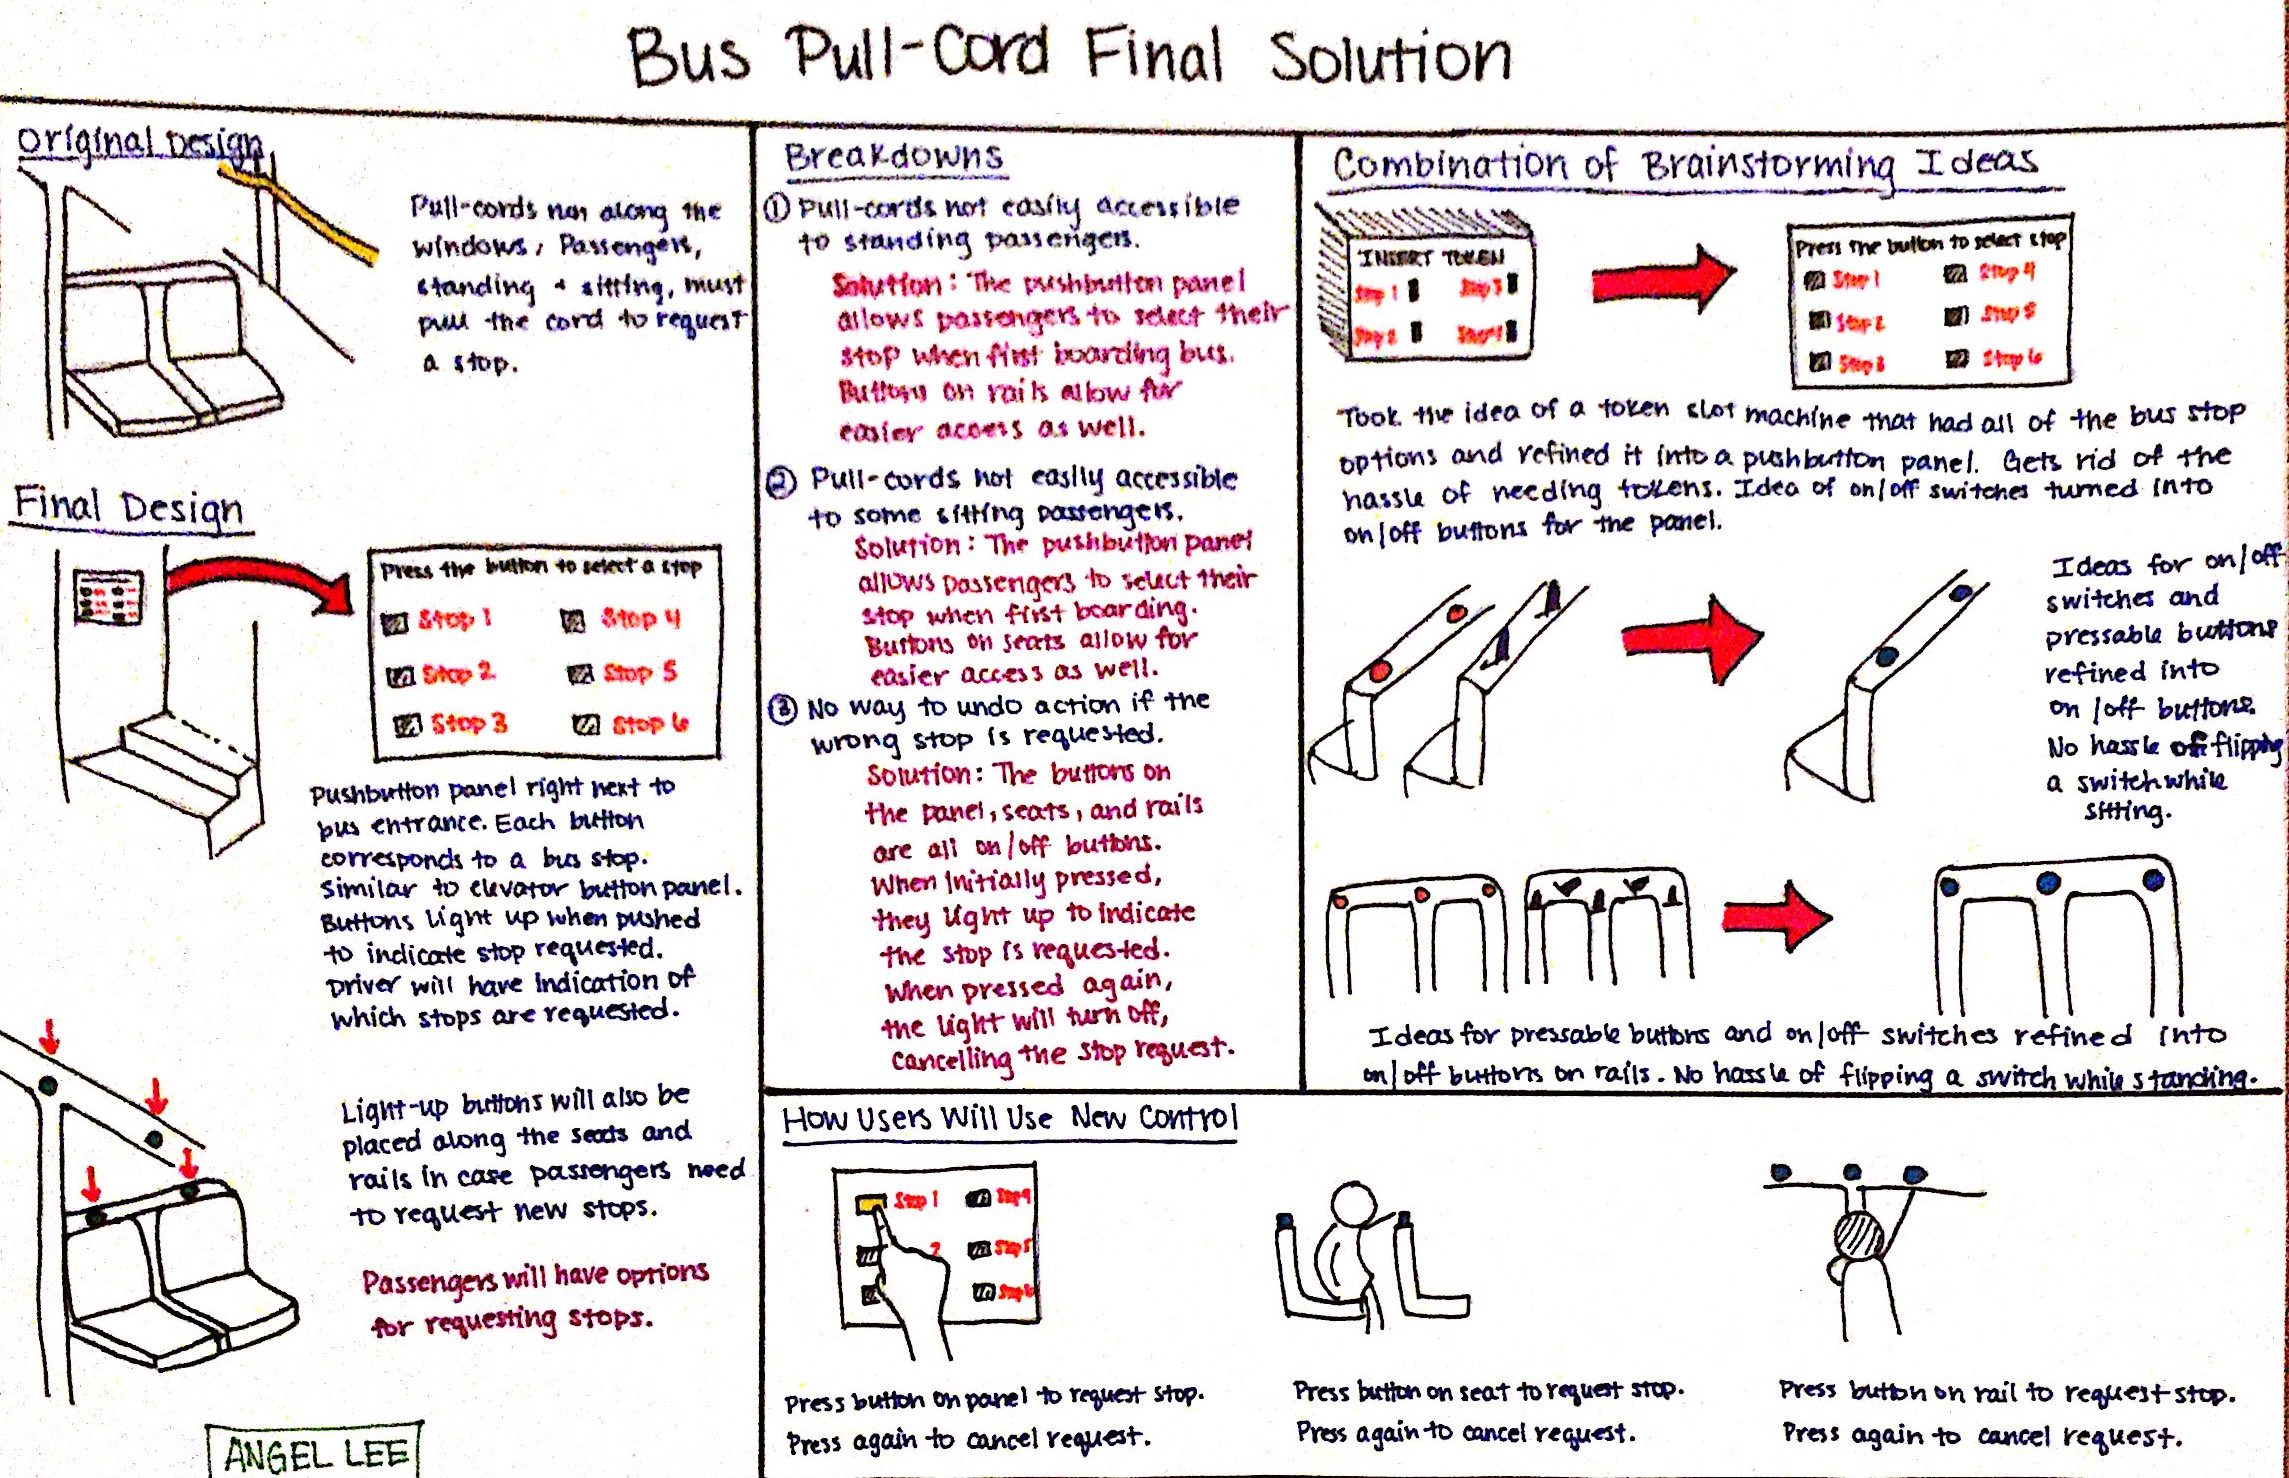 Bus Pull-Cord Final Solution
Original Design
Pull-cords run along the
windows, Passengers,
standing + sitting, must
pull the cord to request
a stop.
Final Design
Press the button to select a stop
Stop 1 Stop 4
Stop 2 Stop 5
Stop 3 Stop 6
Pushbutton panel right next to
bus entrance. Each button
corresponds to a bus stop.
Similar to elevator button panel.
Buttons light up when pushed
to indicate stop requested.
Driver will have indication of
which stops are requested.
Light-up buttons will also be
placed along the seats and
rails in case passengers need
to request new stops.
Passengers will have options
for requesting stops.
ANGEL LEE
Breakdowns
① Pull-cords not easily accessible
to standing passengers.
Solution: The pushbutton panel
allows passengers to select their
stop when first boarding bus.
Buttons on rails allow for
easier access as well.
② Pull-cords not easily accessible
to some sitting passengers.
Solution: The pushbutton panel
allows passengers to select their
stop when first boarding.
Buttons on seats allow for
easier access as well.
③ No way to undo action if the
wrong stop is requested.
Solution: The buttons on
the panel, seats, and rails
are all on/off buttons.
When initially pressed,
they light up to indicate
the stop is requested.
When pressed again,
the light will turn off,
cancelling the stop request.
Combination of Brainstorming Ideas
INSERT TOKEN
Stop 1 Stop 3
Stop 2 Stop 4
Press the button to select stop
Stop 1 Stop 4
Stop 2 Stop 5
Stop 3 Stop 6
Took the idea of a token slot machine that had all of the bus stop
options and refined it into a pushbutton panel. Gets rid of the
hassle of needing tokens. Idea of on/off switches turned into
on/off buttons for the panel.
Ideas for on/off
switches and
pressable buttons
refined into
on/off buttons.
No hassle of flipping
a switch while
sitting.
Ideas for pressable buttons and on/off switches refined into
on/off buttons on rails. No hassle of flipping a switch while standing.
How Users Will Use New Control
Stop 1 Stop 4
2 Stop 5
Stop 6
Press button on panel to request stop.
Press again to cancel request.
Press button on seat to request stop.
Press again to cancel request.
Press button on rail to request stop.
Press again to cancel request.